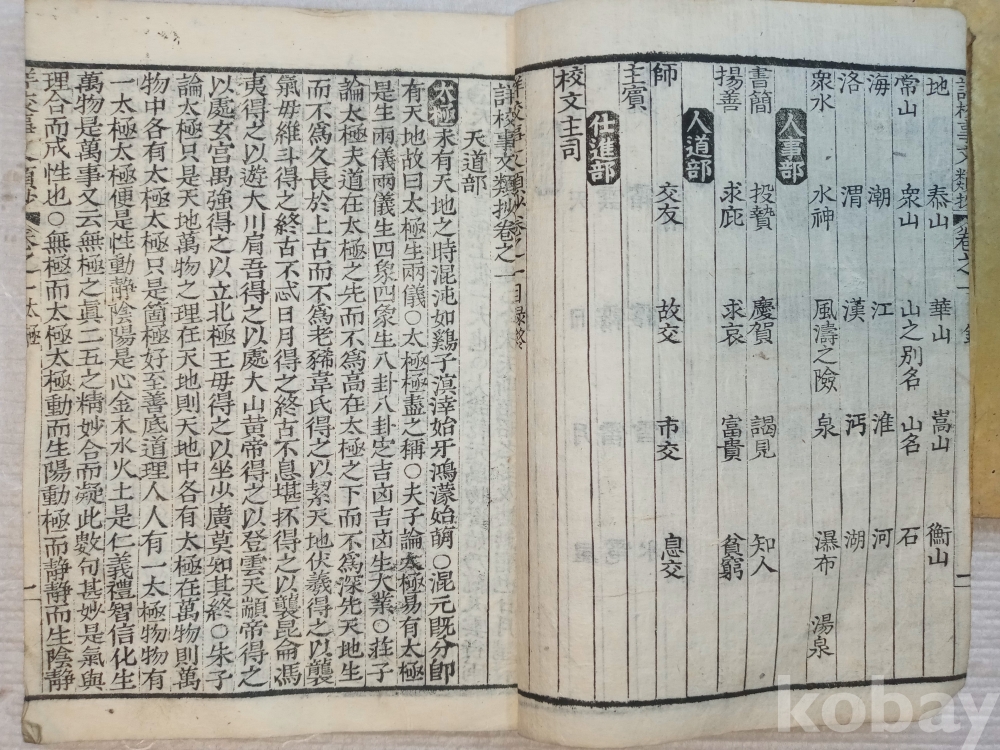 詳校事文類抄 卷之一
地 泰山 華山 嵩山 衡山
常山 衆山 山之別名 山名 石
海 潮 江 淮 河
洛 渭 漢 沔 湖
衆水 水神 風濤之險 泉 瀑布 湯泉
人事部
書簡 投贄 慶賀 謁見 知人
揚善 求庇 求哀 富貴 貧窮
人道部
師 交友 故交 市交 息交
主賓
仕進部
校文主司
詳校事文類抄卷之一目錄終
詳校事文類抄卷之一
天道部
太極 未有天地之時混沌如鷄子溟涬始牙鴻濛始萌○混元旣分卽
有天地故曰太極生兩儀○太極極盡之稱○夫子論太極易有太極
是生兩儀兩儀生四象四象生八卦八卦定吉凶吉凶生大業○莊子
論太極夫道在太極之先而不爲高在太極之下而不爲深先天地生
而不爲久長於上古而不爲老豨韋氏得之以挈天地伏羲得之以襲
氣母維斗得之終古不忒日月得之終古不息堪抔得之以襲昆侖馮
夷得之以遊大川肩吾得之以處大山黄帝得之以登雲天顓帝得之
以處玄宮禺強得之以立北極王母得之以坐少廣莫知其終○朱子
論太極只是天地萬物之理在天地則天地中各有太極在萬物則萬
物中各有太極太極只是箇極好至善底道理人人有一太極物物有
一太極太極便是性動靜陰陽是心金木水火土是仁義禮智信化生
萬物是萬事又云無極之眞二五之精妙合而凝此數句甚妙是氣與
理合而成性也○無極而太極太極動而生陽動極而靜靜而生陰靜
詳校事文類抄 卷之一 太極 一
kobay